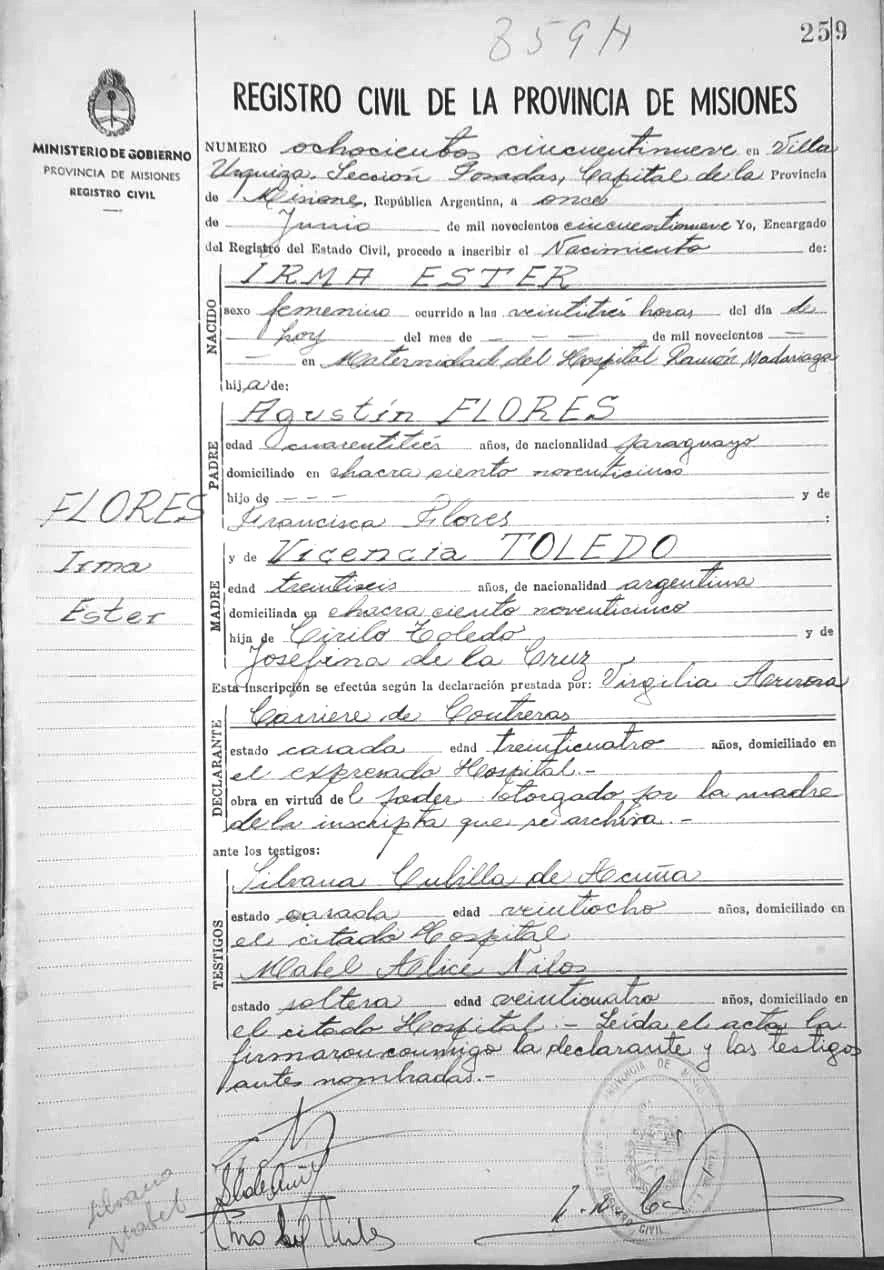 859 H
259
REGISTRO CIVIL DE LA PROVINCIA DE MISIONES
MINISTERIO DE GOBIERNO
PROVINCIA DE MISIONES
REGISTRO CIVIL
NUMERO ochocientos cincuentinueve en Villa
Urquiza. Sección Posadas, Capital de la Provincia
de Misiones, República Argentina, a once
de Junio de mil novecientos cincuentinueve Yo, Encargado
del Registro del Estado Civil, procedo a inscribir el Nacimiento de:
NACIDO
IRMA ESTER
sexo femenino ocurrido a las veintitrés horas del día de
hoy del mes de - - - de mil novecientos -
- en Maternidad del Hospital Ramón Madariaga
hija de:
PADRE
Agustín FLORES
edad cuarentitrés años, de nacionalidad paraguayo
domiciliado en chacra ciento noventicinco
hijo de - - - y de
Francisca Flores :
FLORES
Irma
Ester
MADRE
y de Vicencia TOLEDO
edad treintiseis años, de nacionalidad argentina
domiciliada en chacra ciento noventicinco
hija de Cirilo Toledo y de
Josefina de la Cruz
Esta inscripción se efectúa según la declaración prestada por: Virgilia
DECLARANTE
Carriere de Contreras
estado casada edad treinticuatro años, domiciliado en
el expresado Hospital.-
obra en virtud del poder otorgado por la madre
de la inscripta que se archiva.-
ante los testigos:
TESTIGOS
Silvana Cubilla de Acuña
estado casada edad veintiocho años, domiciliado en
el citado Hospital
Mabel Alice
estado soltera edad veinticuatro años, domiciliado en
el citado Hospital.- Leída el acta la
firmaron conmigo la declarante y las testigos
antes nombradas.-
PROVINCIA DE
REGISTRO CIVIL
Silvana
Mabel